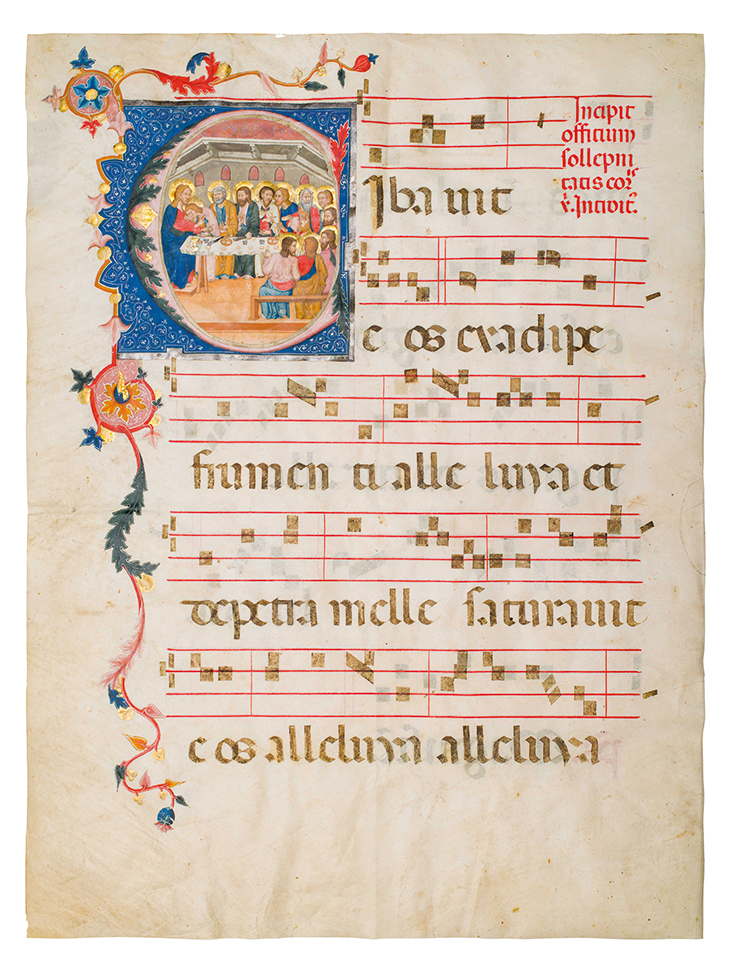 Incipit
officium
sollepni
tatis
CIba uit
e os exadipe
frumen ti alle luya et
depetra melle saturauit
e os alleluya alleluya